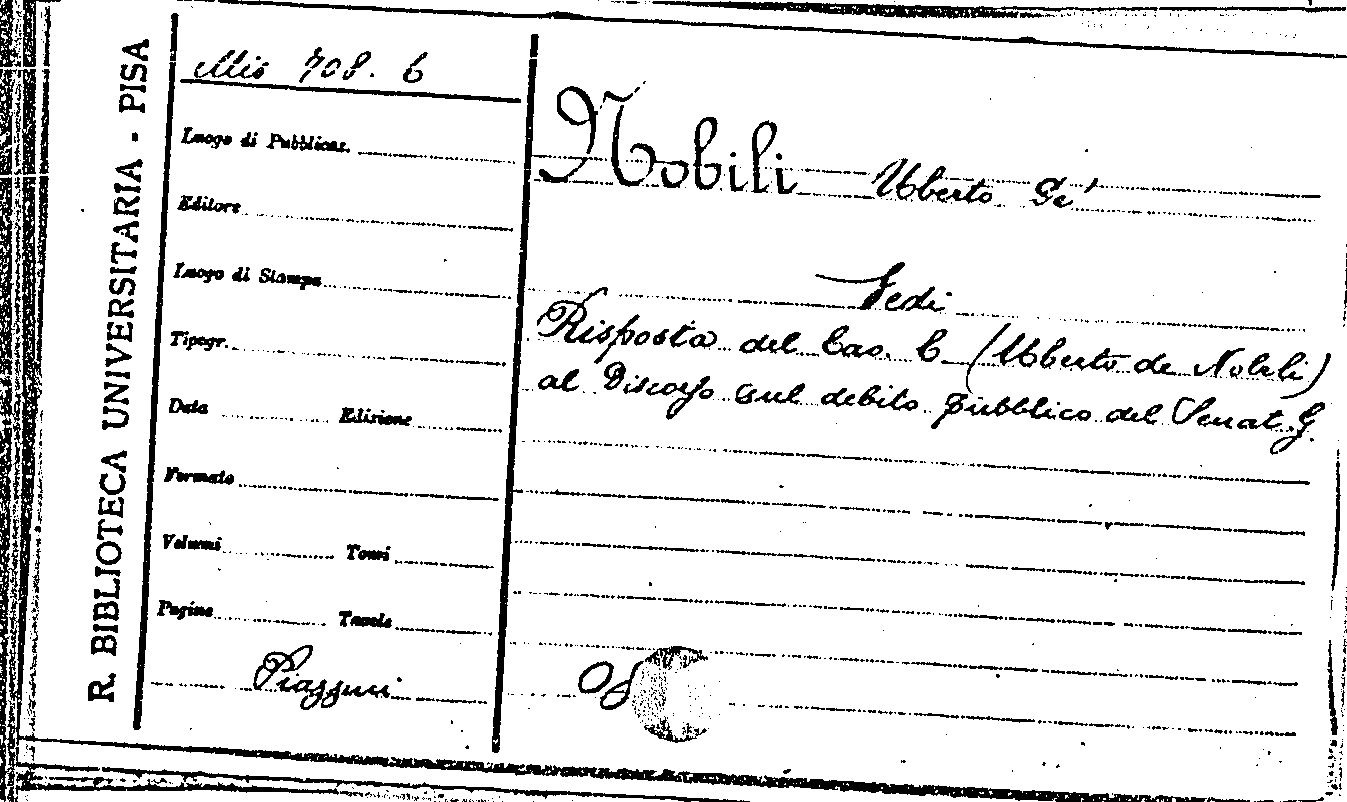 R. BIBLIOTECA UNIVERSITARIA - PISA
Mis 708. 6
Luogo di Pubblicaz.
Editore
Luogo di Stampa
Tipogr.
Data Edizione
Formato
Volumi Tomi
Pagine Tavole
Piazzini
Nobili Uberto De'
Vedi
Risposta del Cav. C. (Ubberto de Nobili)
al Discorso sul debito pubblico del Senat. G.